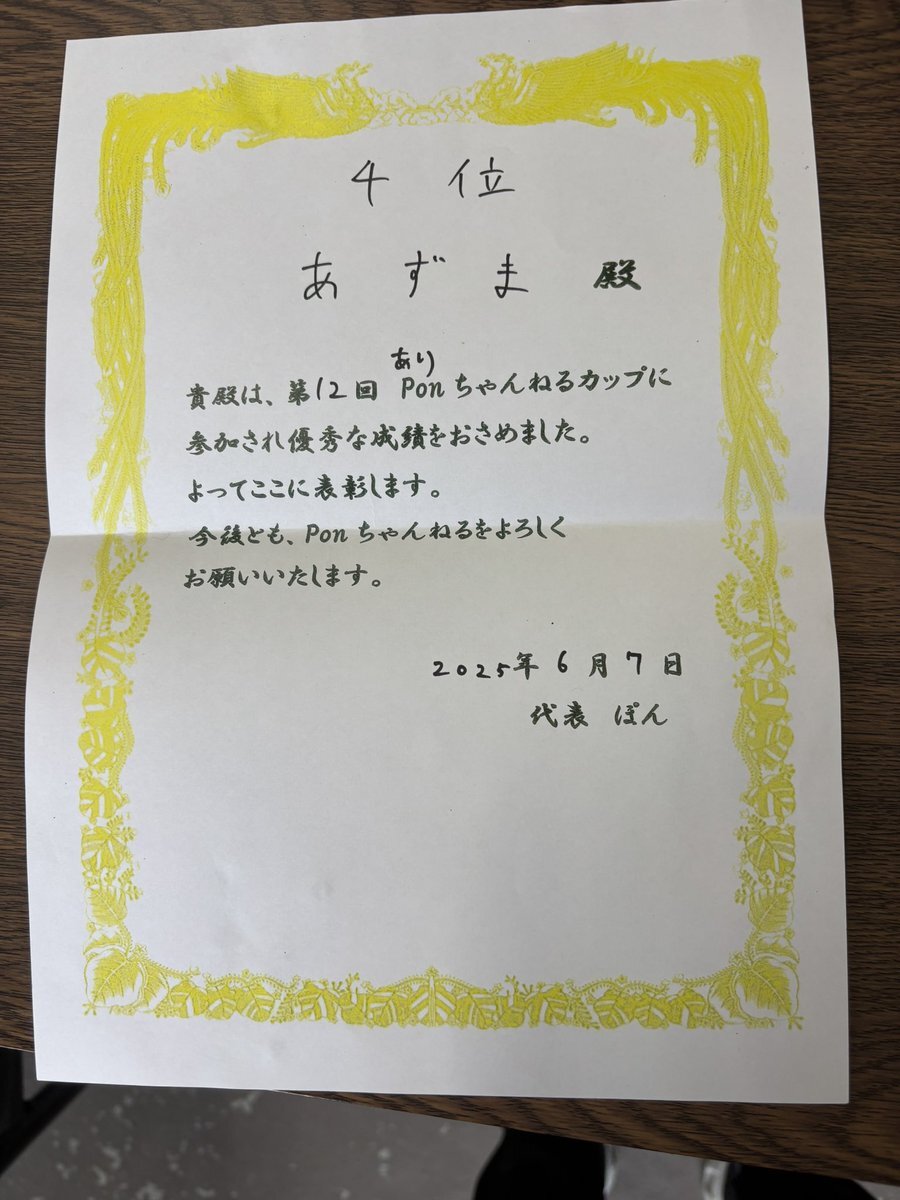 4位
あずま 殿
あり
貴殿は、第12回 Ponちゃんねるカップに
参加され優秀な成績をおさめました。
よってここに表彰します。
今後とも、Ponちゃんねるをよろしく
お願いいたします。
2025年6月7日
代表 ぽん